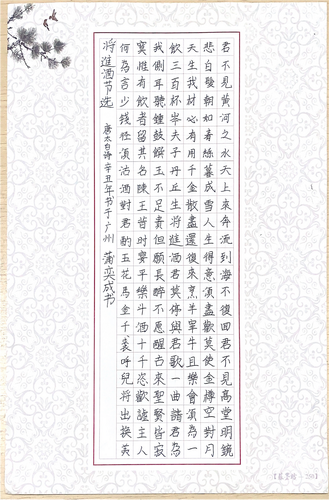 君不見黄河之水天上來奔流到海不復回君不見高堂明鏡
悲白髮朝如青絲暮成雪人生得意須盡歡莫使金樽空對月
天生我材必有用千金散盡還復來烹羊宰牛且樂會須為一
飲三百杯岑夫子丹丘生將進酒君莫停與君歌一曲請君為
我側耳聽鐘鼓饌玉不足貴但願長醉不願醒古來聖賢皆寂
寞惟有飲者留其名陳王昔時宴平樂斗酒十千恣歡謔主人
何為言少錢徑須沽酒對君酌五花馬金千裘呼兒將出換美
将進酒节选 唐太白诗辛丑年书于广州 蒲奕成书